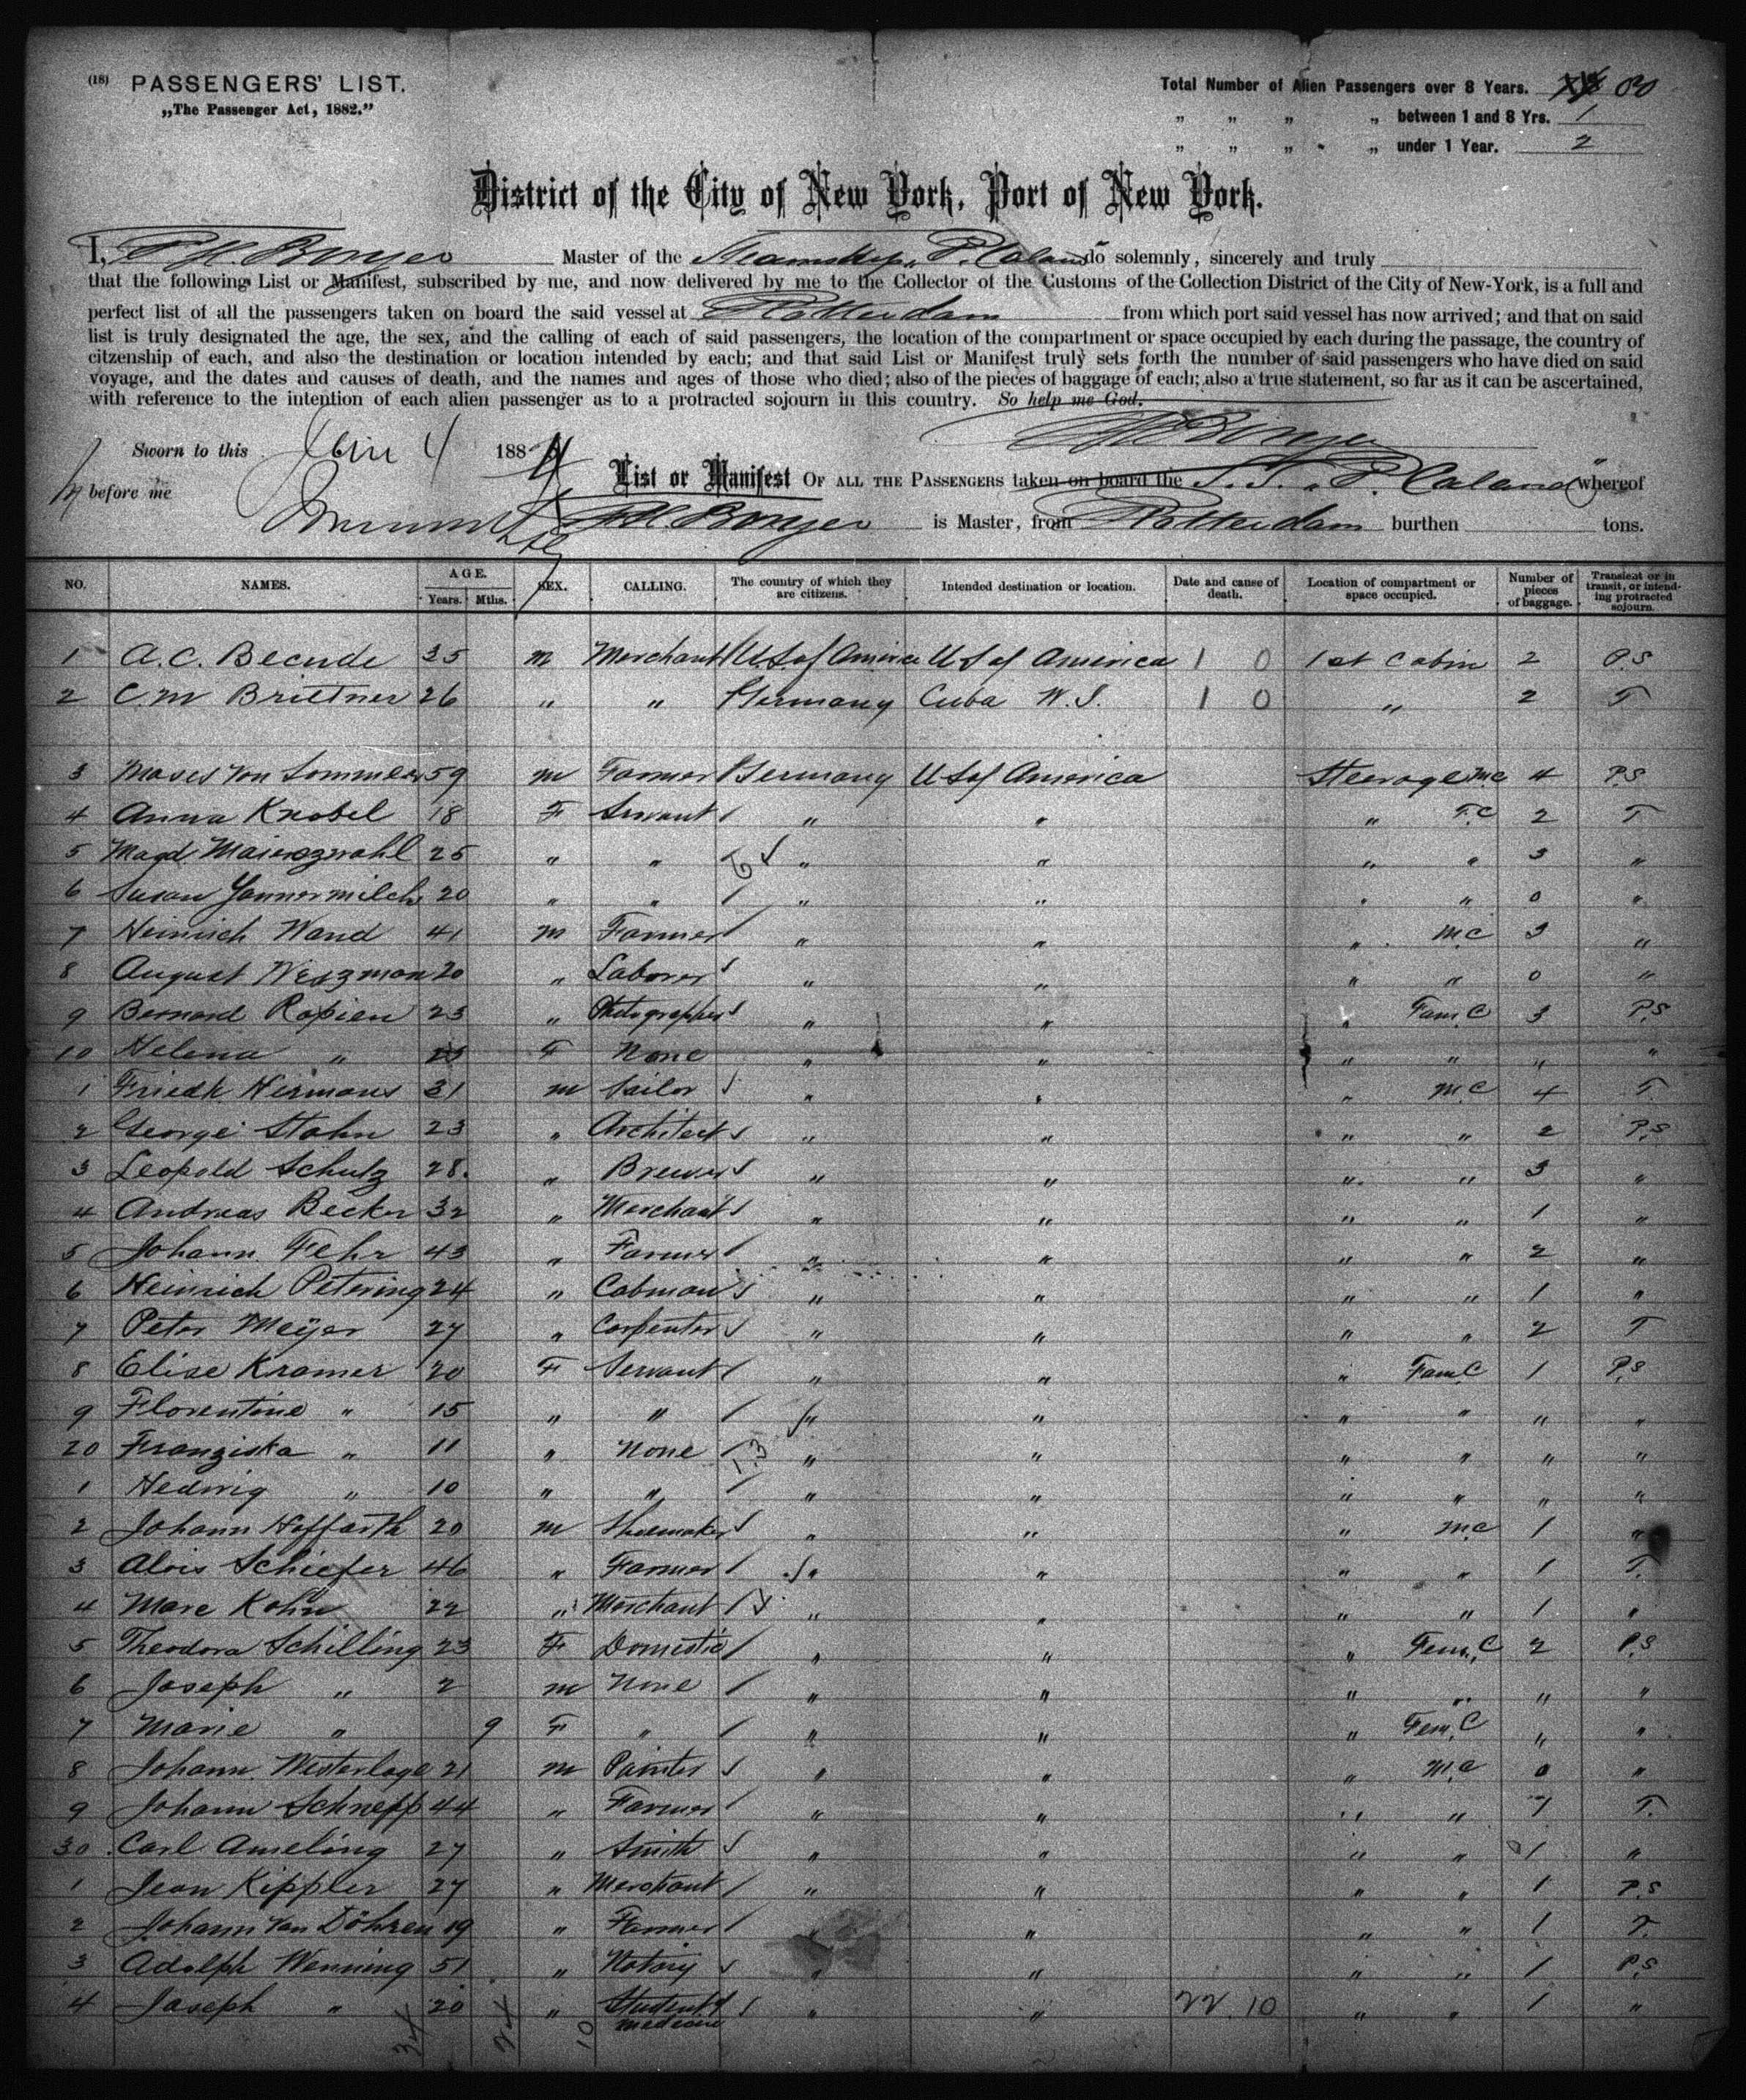 (18) PASSENGERS' LIST.
„The Passenger Act, 1882."
Total Number of Alien Passengers over 8 Years. 80
„ „ „ „ between 1 and 8 Yrs. 1
„ „ „ „ under 1 Year. 2
District of the City of New York, Port of New York.
I, Bonjer Master of the Steamship „P. Caland" do solemnly, sincerely and truly
that the following List or Manifest, subscribed by me, and now delivered by me to the Collector of the Customs of the Collection District of the City of New-York, is a full and
perfect list of all the passengers taken on board the said vessel at Rotterdam from which port said vessel has now arrived; and that on said
list is truly designated the age, the sex, and the calling of each of said passengers, the location of the compartment or space occupied by each during the passage, the country of
citzenship of each, and also the destination or location intended by each; and that said List or Manifest truly sets forth the number of said passengers who have died on said
voyage, and the dates and causes of death, and the names and ages of those who died; also of the pieces of baggage of each; also a true statement, so far as it can be ascertained,
with reference to the intention of each alien passenger as to a protracted sojourn in this country. So help me God.
Bonjer
Sworn to this 4 188
before me
List or Manifest OF ALL THE PASSENGERS taken on board the S.S. „P. Caland" whereof
Bonjer is Master, from Rotterdam burthen tons.
NO. NAMES. AGE. Years. Mths. SEX. CALLING. The country of which they are citizens. Intended destination or location. Date and cause of death. Location of compartment or space occupied. Number of pieces of baggage. Transient or in transit, or intending protracted sojourn.
1 A.C. 35 m Merchant U.S. of America U S of America 1 0 1st Cabin 2 P.S
2 C.M Brittner 26 „ „ Germany Cuba W.I. 1 0 „ 2 T
3 Moses Von Sommer 59 m Farmer Germany U S of America Steerage m.c 4 P.S
4 Anna Knobel 18 F Servant „ „ „ F.C 2 T
5 Magd 25 „ „ „ „ „ „ 3 „
6 Susan 20 „ „ „ „ „ „ 0 „
7 Heinrich Wand 41 m Farmer „ „ „ m.c 3 „
8 August Weszman 20 „ Laborer „ „ „ „ 0 „
9 Bernard Ropien 23 „ Photographer „ „ „ Fam.C 3 P.S
10 Helena „ F None „ „ „ „ „ „
1 Friedk Hermans 31 m Sailor „ „ „ m.c 4 T.
2 George Stahn 23 „ Architect „ „ „ „ 2 P.S
3 Leopold Schulz 28. „ Brewer „ „ „ „ 3 „
4 Andreas Becker 32 „ Merchant „ „ „ „ 1 „
5 Johann Fehr 43 „ Farmer „ „ „ „ 2 „
6 Heinrich Petering 24 „ Cabman „ „ „ „ 1 „
7 Peter Meÿer 27 „ Carpenter „ „ „ „ 2 T
8 Elise Kramer 20 F Servant „ „ „ Fam.C 1 P.S
9 Florentine „ 15 „ „ „ „ „ „ „ „
20 Franziska „ 11 „ None „ „ „ „ „ „
1 Hedwig „ 10 „ „ „ „ „ „ „ „
2 Johann Hoffarth 20 m Shoemaker „ „ „ m.c 1 „
3 Alois Schiefer 46 „ Farmer „ „ „ „ 1 T.
4 Marc Kohn 22 „ Merchant „ „ „ „ 1 „
5 Theodora Schilling 23 F Domestic „ „ „ Fem.C 2 P.S
6 Joseph „ 2 m None „ „ „ „ „ „
7 Marie „ 9 F „ „ „ „ Fem.C „ „
8 Johann Westerlage 21 m Painter „ „ „ m.c 0 „
9 Johann Schnepp 44 „ Farmer „ „ „ „ 1 T.
30 Carl Ameling 27 „ Smith „ „ „ „ 1 „
1 Jean Kippler 27 „ Merchant „ „ „ „ 1 P.S
2 Johann Van Döhren 19 „ Farmer „ „ „ 1 T.
3 Adolph Wenning 51 „ Notary „ „ „ „ 1 P.S
4 Joseph „ 20 „ Student medicine „ „ 22 10 „ „ 1 „
34 24 10